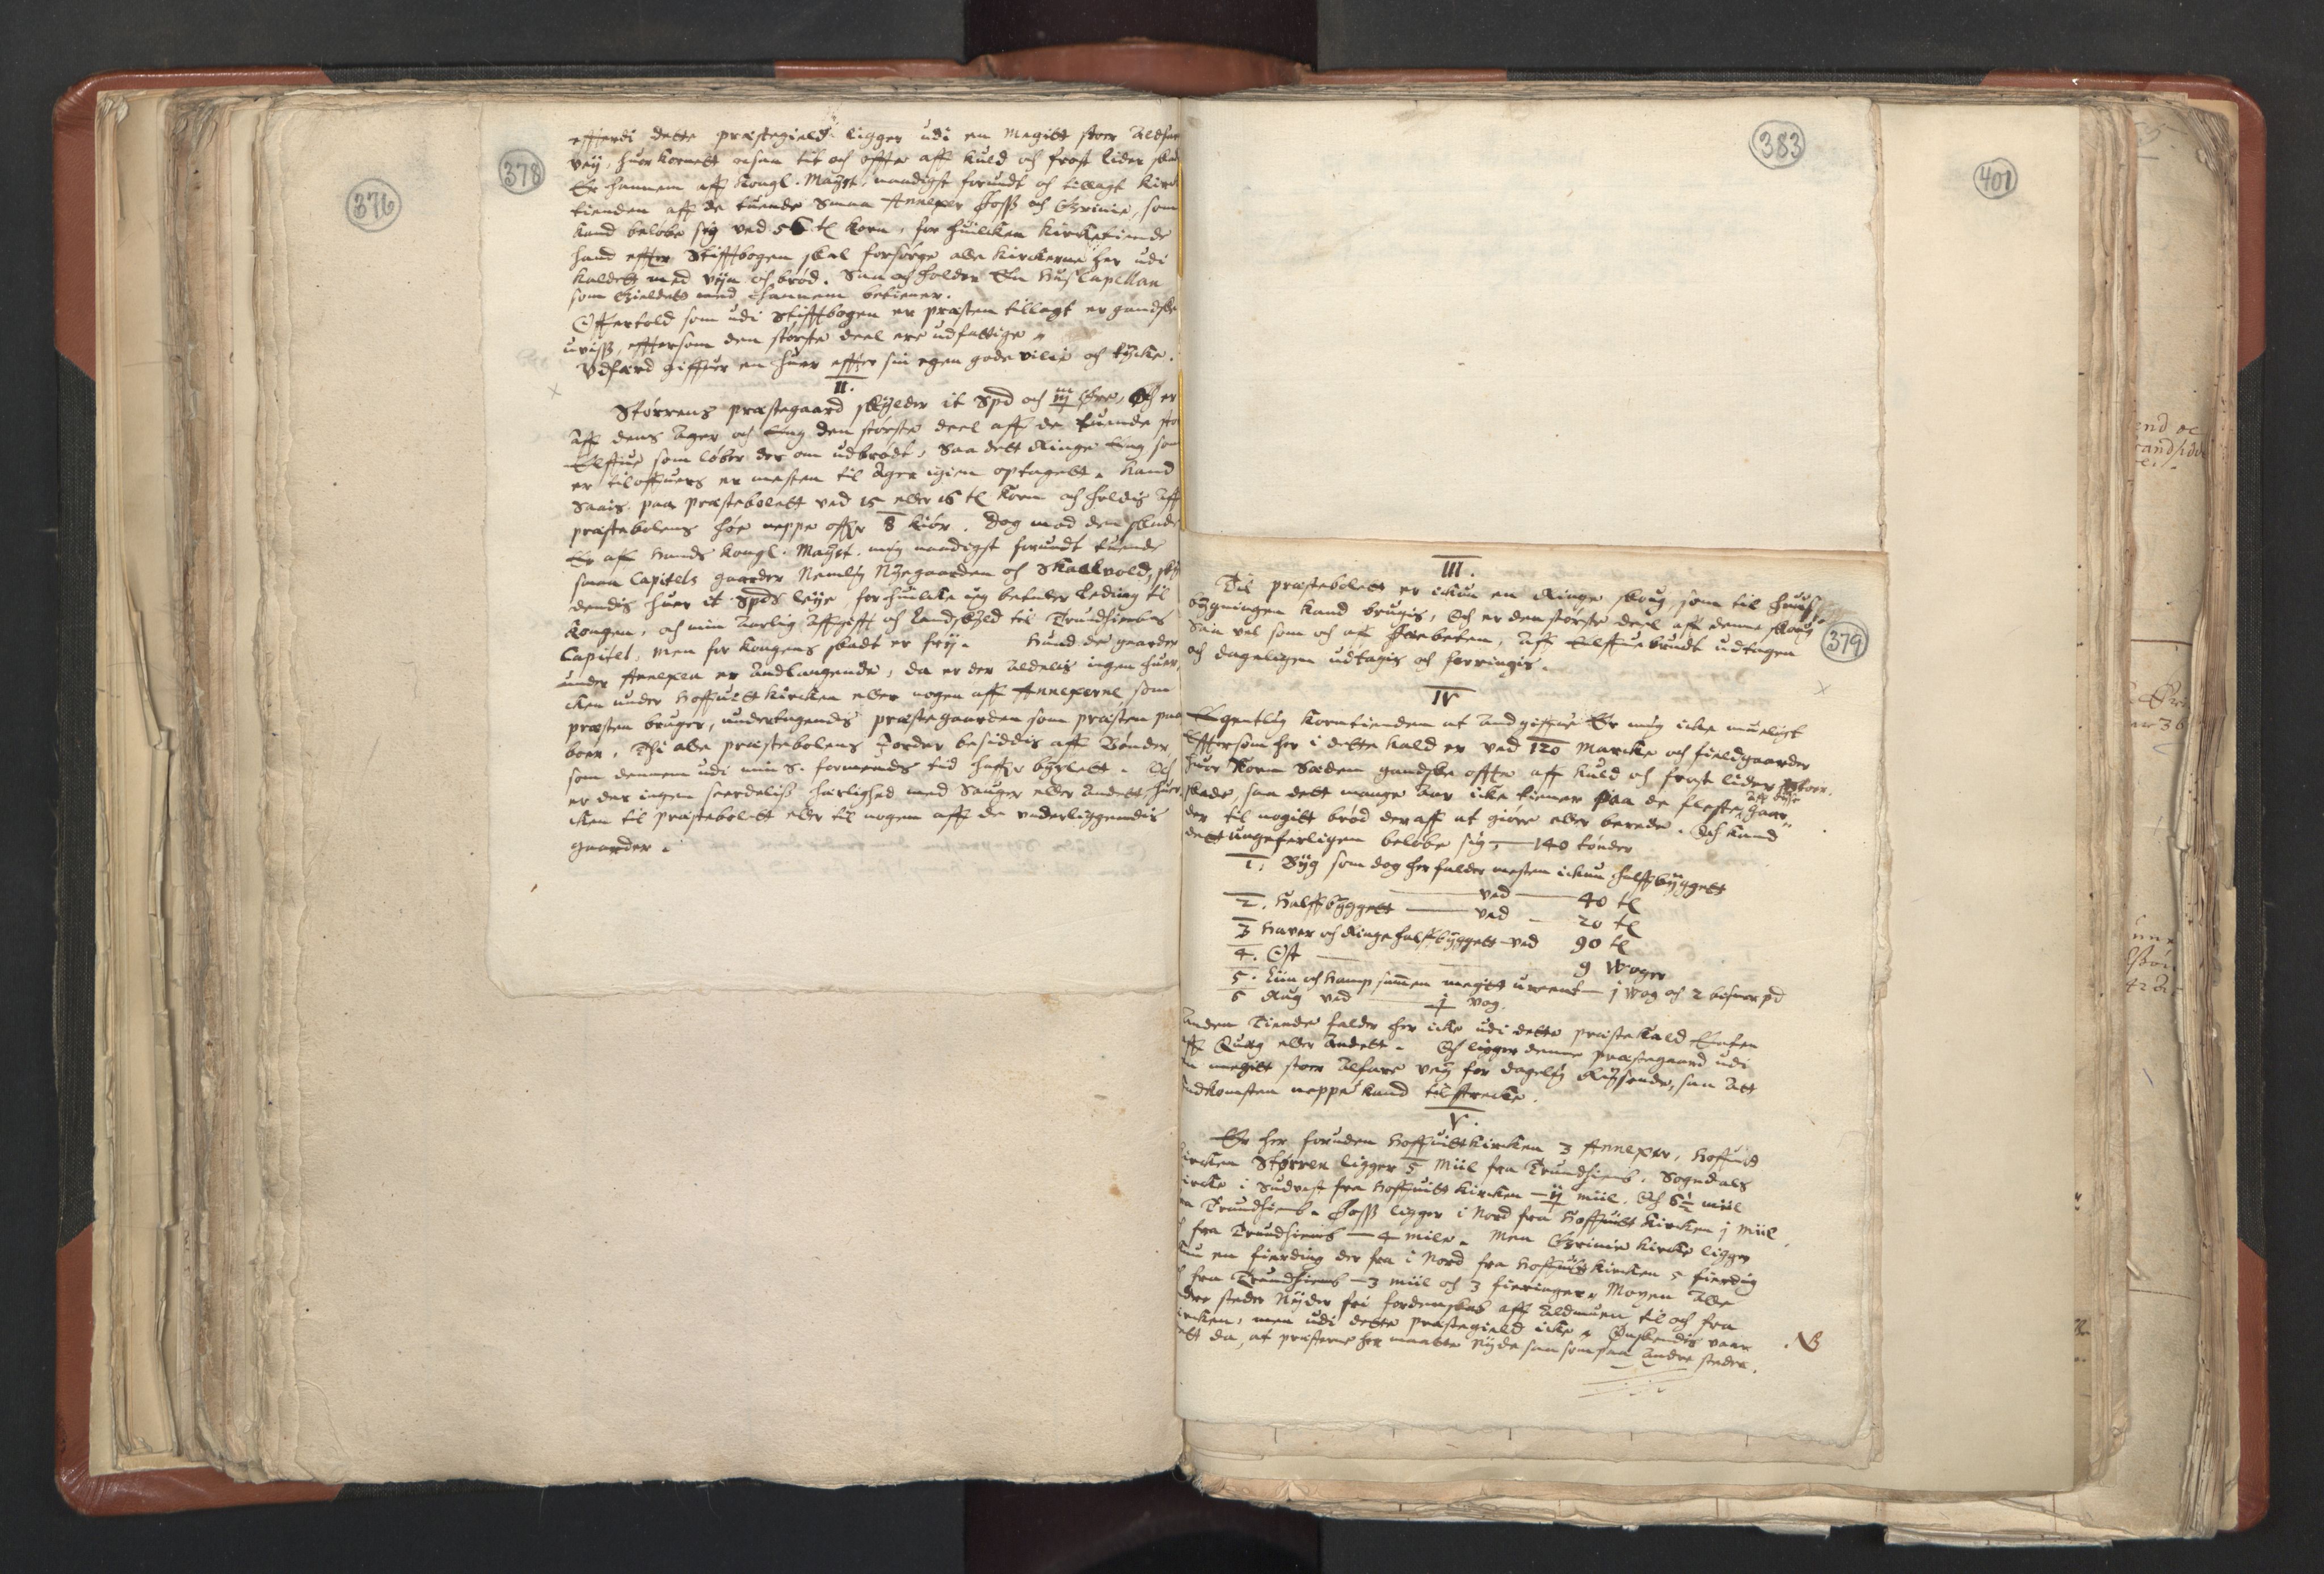 376
378
effterdi dette præstegield ligger udi en Megitt stoer Alfar
veÿ, huor Kornett ocsaa tit och offte aff kuld och frost lider skad
Er hannem aff Kongl. Maÿst. naadigst forundt och tillagt Kirck
tienden aff de tuende Smaa Annexer
kand beløbe sig ved 56 tl Korn, for huilcken Kircketiende
hand effter Stifftbogen skal forsørge alle Kirckerne her udi
Kaldett med vijn och brød. Saa och holder En Huß Capellan
som Gieldett med hannem betiener.
Offertold som udi Stifftbogen er præsten tillagt er gandske
uviß, efftersom den største deel ere udfattige
Udferd giffuer en huer effter sin egen gode vilie och tÿcke.
II.
Størrens præstegaard skÿlder it Spd och iij Øre, Och er
Aff dens Ager och Eng den største deel aff de tuende sto
Elffue som løber der om udbrødt, Saa dett Ringe Eng som
er tiloffuers er mesten til Ager igien optagett. Kand
Saais paa Præstebolett ved 15 eller 16 tl Korn och holdis Aff
præstebolens høe neppe offuer 8 Kiør. Dog mod den skade
Er aff Hands Kongl. Maÿst. mig naadigst forundt tuende
smaa Capitels gaarder Nemlig Nÿegaarden och Skaelvold, skÿl
dendis huer it Spds leÿe, for huilcke ieg betaler Leding til
Kongen, och min Aarlig Affgifft och Landskÿld til Trundhiembs
Capitel, men for Kongens skadt er frÿ. Hund de gaarder
under Annexen er Andlangende, da er der Aldelis ingen huer,
cken under Hoffuitt kircken eller nogen aff Annexerne, som
præsten bruger, undertagendis præstegaarden som præsten paa
boer. Thi alle præstebolens Jorder besiddis aff Bønder
som dennem udi min S. formands tid haffuer bÿxlett. Och
er der ingen seerdeliß herlighed med Sauger eller Andett huer,
cken til præstebolett eller til nogen aff de underliggendis
gaarder.
383
401
III.
Til præstebolett er ickun en Ringe skoug, som til huuß
bÿgningen kand brugis, Och er den største deel aff denne skoug
Saa vel som och aff Aff Elffuebrudt udtagen
och dageligen udtagis och forringis.
379
IV
Egentlig Korntienden at Andgiffue Er mig icke mueligt
Efftersom her i dette Kald er ved 120 Marcke och fieldgaarder
huor Korn Sæden gandske offte aff kuld och frost lider stoor
skade, saa dett mange Aar icke tiener paa de fleste aff disse Gaar
der til nogitt brød der aff at giøre eller berede. Och kand
dett ungeferligen beløbe sig — 140 tønder
1. Bÿg som dog her falder mesten ickun halffbÿggett
ved — 40 tl
2. Halffbÿggett — ved — 20 tl
3 Haver och Ringe halffbÿggett ved 90 tl
4. Ost — 9 Woger
5. Liin och Hamp sammen megitt ureent — j Wog och 2 bismer pd
6 Rug ved — j Vog.
Anden Tiende falder her icke udi dette præstekald Enten
Aff Quæg eller Andett. Och ligger denne præstegaard udi
en megitt stoer Alfare veÿ for dagelig Reÿsende, saa Att
Indkomsten neppe kand tilstrecke.
V.
Er her foruden Hoffuitkircken 3 Annexer, Hoffuit
kircken Størren ligger 5 Miil fra Trundhiemb. Sogndals
kircke i Sudvest fra Hoffuitt kircken — ij miil. Och 6½ miil
fra Trundhiemb. ligger i Nord fra Hoffuitt Kircken j Miil
fra Trundhiemb — 4 mile. Men kircke ligger
en fierding der fra i Nord fra Hoffuitt kircken 5 fierding
fra Trundhiemb — 3 miil och 3 fieringer. Moxen Alle
andre steder Nÿder fri fordenskab aff Aldmuen til och fra
kircken, men udi dette præstegield icke. Ønskendis vaar
dett da, at præsterne her maatte Nÿde saa som paa Andre steder.
NB